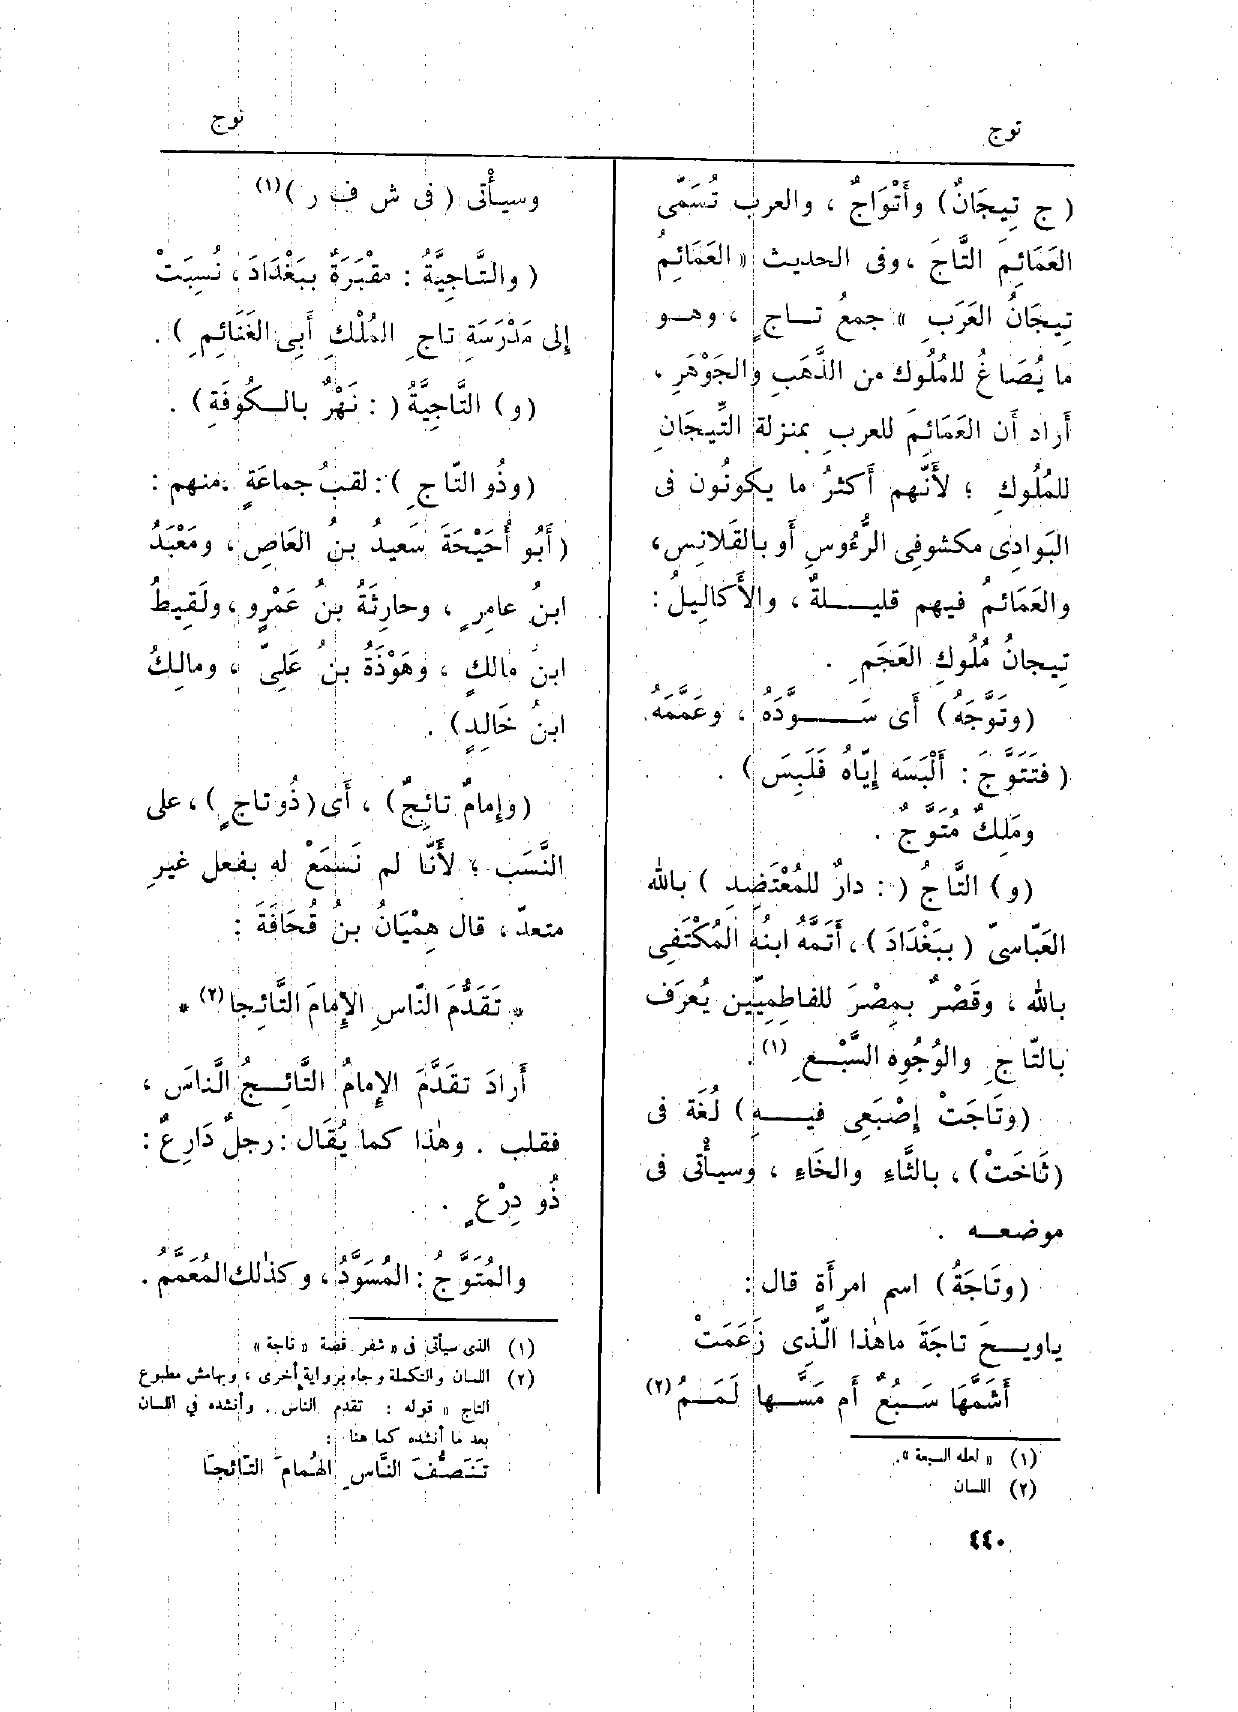 توج
توج
( ج تِيجَانٌ) وأَتْوَاجٌ ، والعرب تُسَمِّى
العَمَائِمَ التَّاجَ ، وفى الحديث « العَمَائِمُ
تِيجَانُ العَرَبِ » جمعُ تاجٍ ، وهو
ما يُصَاغُ للمُلُوك من الذَّهَبِ والجَوْهَرِ ،
أراد أن العَمَائِمَ للعرب بمنزلة التِّيجَانِ
للمُلُوكِ ؛ لأَنَّهم أَكثرُ ما يكونُون فى
البَوادِى مكشوفِى الرُّءُوسِ أَو بالقَلانِسِ ،
والعَمَائمُ فيهم قليلةٌ ، والأَكالِيلُ :
تِيجانُ مُلُوكِ العَجَمِ .
(وتَوَّجَهُ) أَى سَوَّدَهُ ، وعَمَّمَهُ.
( فتَتَوَّجَ : أَلْبَسَه إِيّاهُ فَلَبِسَ ) .
ومَلِكٌ مُتَوَّجٌ .
(و) التَّاجُ ( : دارٌ للمُعْتَضِدِ ) بالله
العَبّاسىّ ( ببَغْدَادَ ) ، أَتَمَّهُ ابنُه المُكْتَفِى
بالله ، وقَصْرٌ بمِصْرَ للفاطِمِيّين يُعرَف
بالتّاجِ والوُجُوِه السَّبْعِ (١) .
(وتَاجَتْ إِصْبَعِى فيهِ ) لُغَة فى
(ثَاخَتْ) ، بالثَّاءِ والخَاءِ ، وسيأْتى فى
موضعه .
(وتَاجَةُ ) اسم امرأَةٍ قال :
ياويحَ تاجَةَ ماهٰذا الَّذِى زَعَمَتْ
أَشَمَّهَا سَبُعٌ أَم مَسَّها لَمَمُ (٢)
(١) « لعله السبعة » .
(٢) اللسان
وسيأْتى ( فى ش ف ر )(١)
( والتَّاجِيَّةُ : مقْبَرَةٌ ببَغْدَادَ ، نُسِبَتْ
إِلى مَدْرَسَةِ تاجِ المُلْكِ أَبِى الغَنَائِمِ ) .
(و) التَّاجِيَّةُ ( : نَهْرٌ بالكُوفَةِ ) .
(وذُو التّاجِ ) : لقبُ جماعَةٍ منهم :
( أَبُو أُحَيْحَةَ سَعِيدُ بنُ العَاصِ ، ومَعْبَدُ
ابنُ عامِرٍ ، وحارِثَةُ بنُ عَمْرٍو ، ولَقِيطُ
ابنُ مالكٍ ، وهَوْذَةُ بنُ عَلِىٍّ ، ومالِكُ
ابنُ خَالِدٍ) .
(وإِمامٌ تائِجٌ) ، أَى (ذُو تاجٍ ) ، على
النَّسَب ؛ لأَنّا لم نَسمَعْ له بفعل غيرِ
متعدّ ، قال هِمْيَانُ بنُ قُحَافَةَ :
* تَقَدُّمَ النّاسِ الإِمامَ التَّائِجا(٢) *
أَرادَ تقَدَّمَ الإِمامُ التَّائِجُ النَّاسَ ،
فقلب . وهٰذا كما يُقَال : رجلٌ دَارِعٌ :
ذُو دِرْعٍ .
والمُتَوَّجُ : المُسَوَّدُ ، وكذٰلك المُعَمَّمُ .
(١) الذى سيأتى فى « شفر قصة « تاجة »
(٢) اللسان والتكملة وجاء برواية أخرى ، وبهامش مطبوع
التاج « قوله : تقدم الناس . وأنشده في اللسان
بعد ما أنشده كما هنا :
تَنَصُّفَ النَّاسِ الهُمامَ التّائجا
٤٤٠